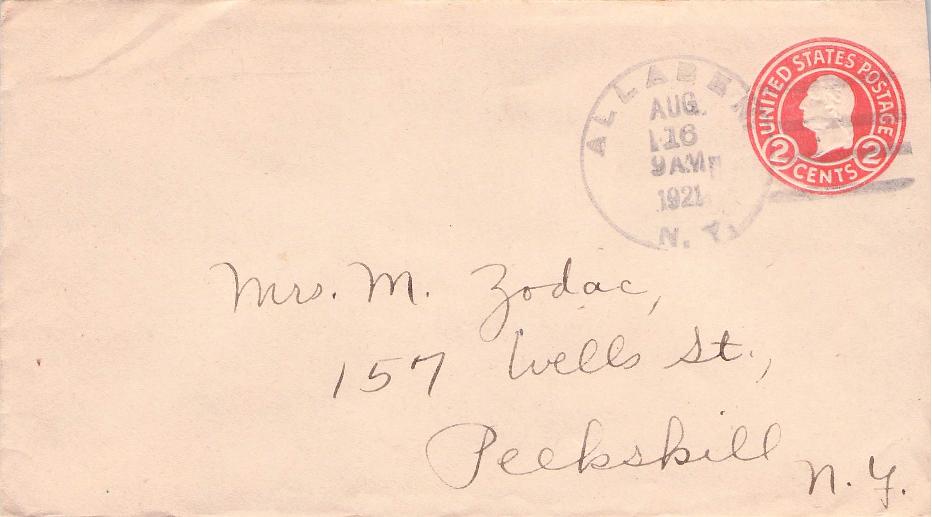 UNITED STATES POSTAGE
2 CENTS 2
ALLABEN
AUG.
16
9 AM
1921
N. Y.
Mrs. M. Zodac,
157 Wells St.,
Peekskill
N. Y.